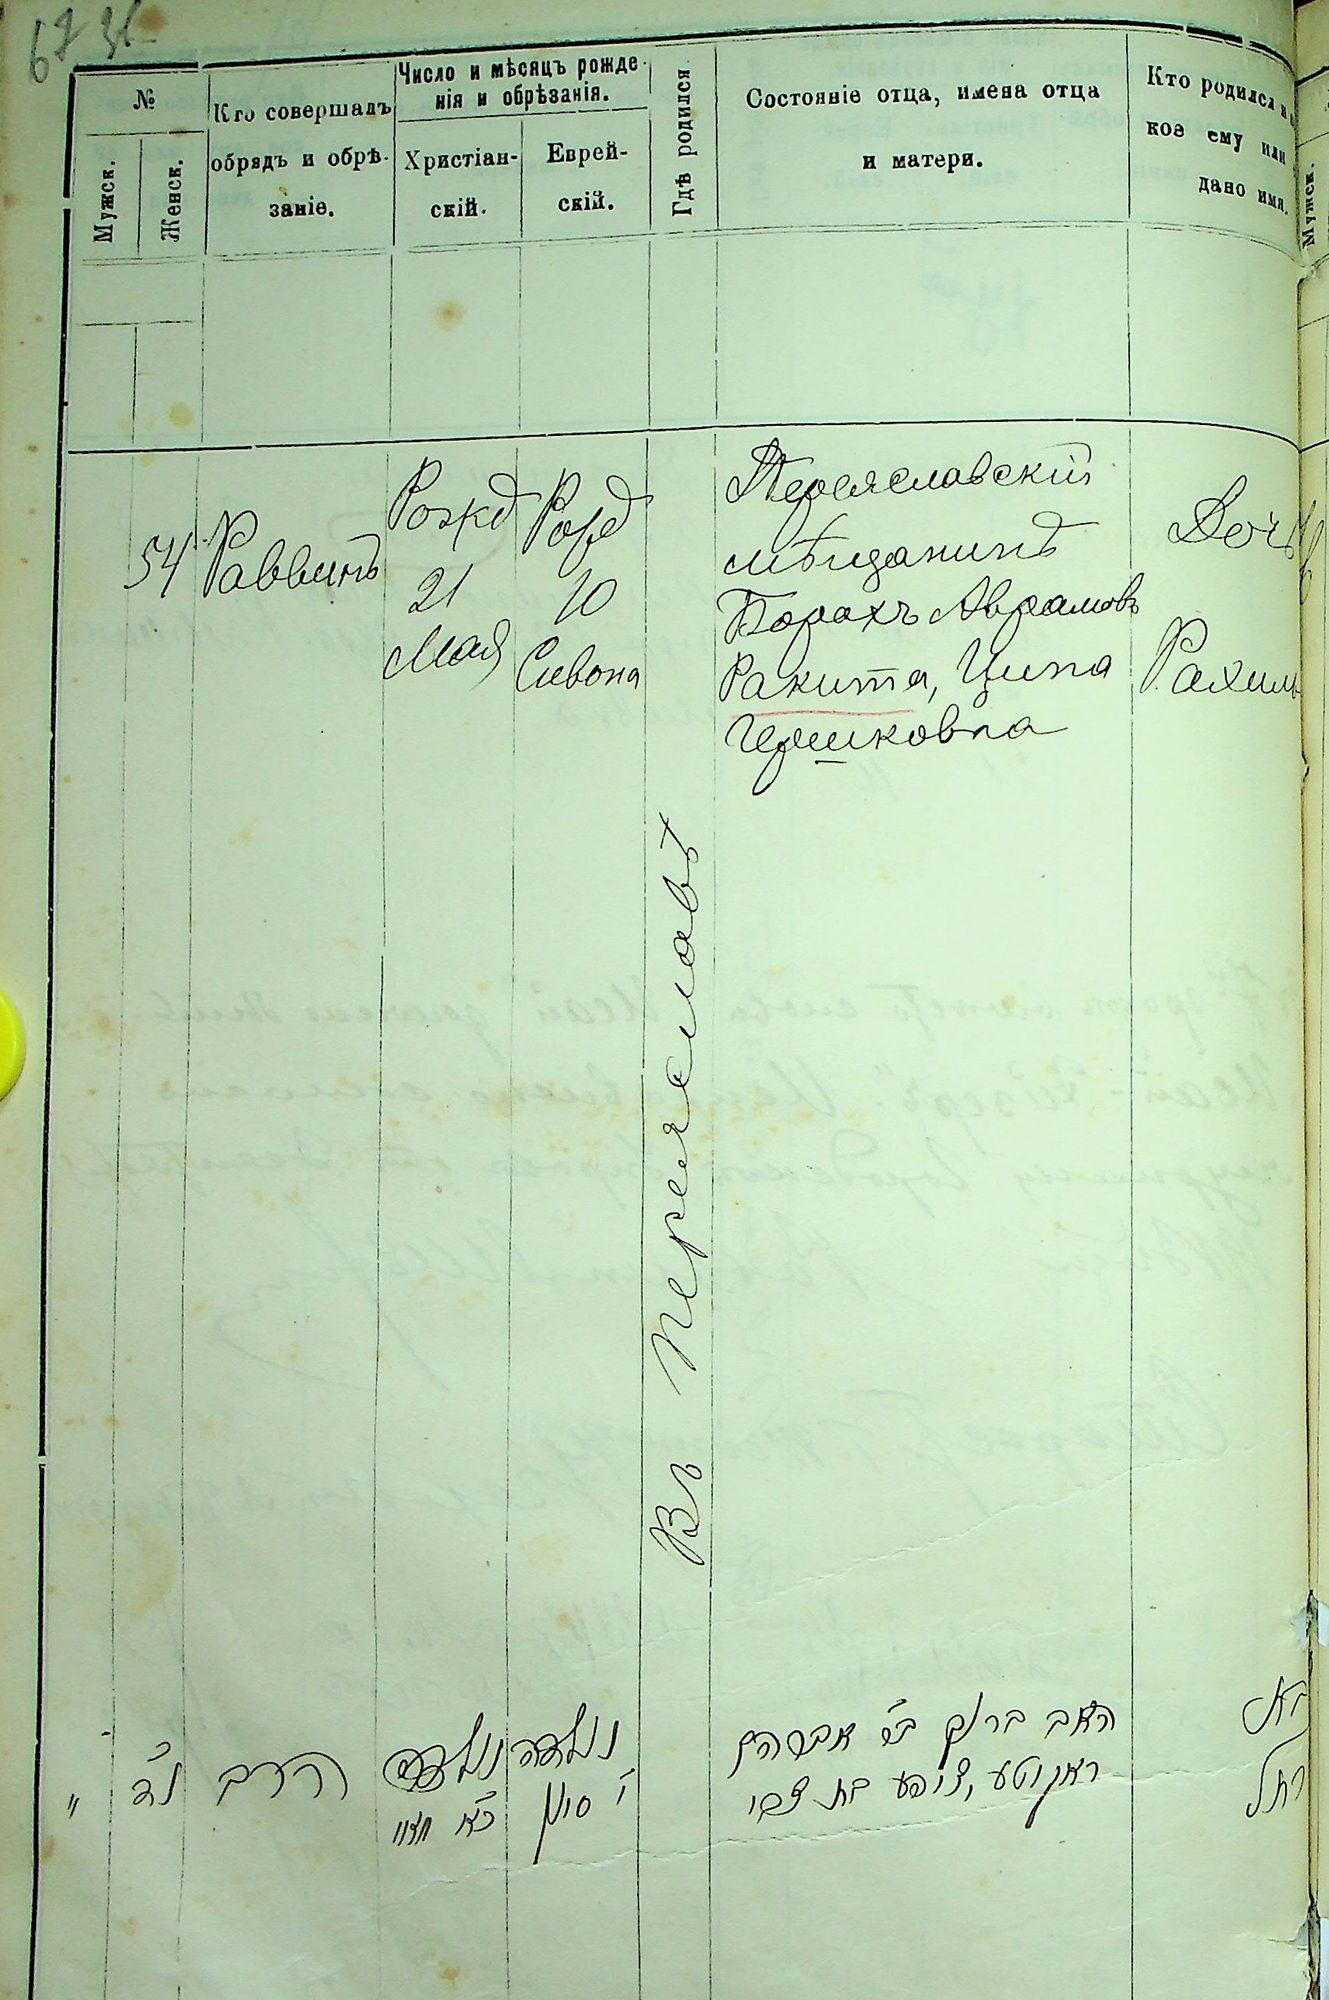 67
№
Мужск.
Женск.
Кто совершалъ
обрядъ и обрѣ-
заніе.
Число и мѣсяцъ рожде-
нія и обрѣзанія.
Христіан-
скій.
Еврей-
скій.
Гдѣ родился
Состояніе отца, имена отца
и матери.
Кто родился и
кое ему или
дано имя.
Мужск.
54
Раввинъ
Рожд
21
Мая
Рожд
10
Сивона
Въ Переяславѣ
Переяславскій
мѣщанинъ
Борахъ Аврамовъ
Ракита, Ципа
Гершковна
Дочь
Рахиль
"
נ״ד
הרב
נולדה
כ״א מאי
נולדה
י׳ סיון
האב ברוך ב״ר אברהם
ראקיטא, ציפע בת צבי
בת
רחל